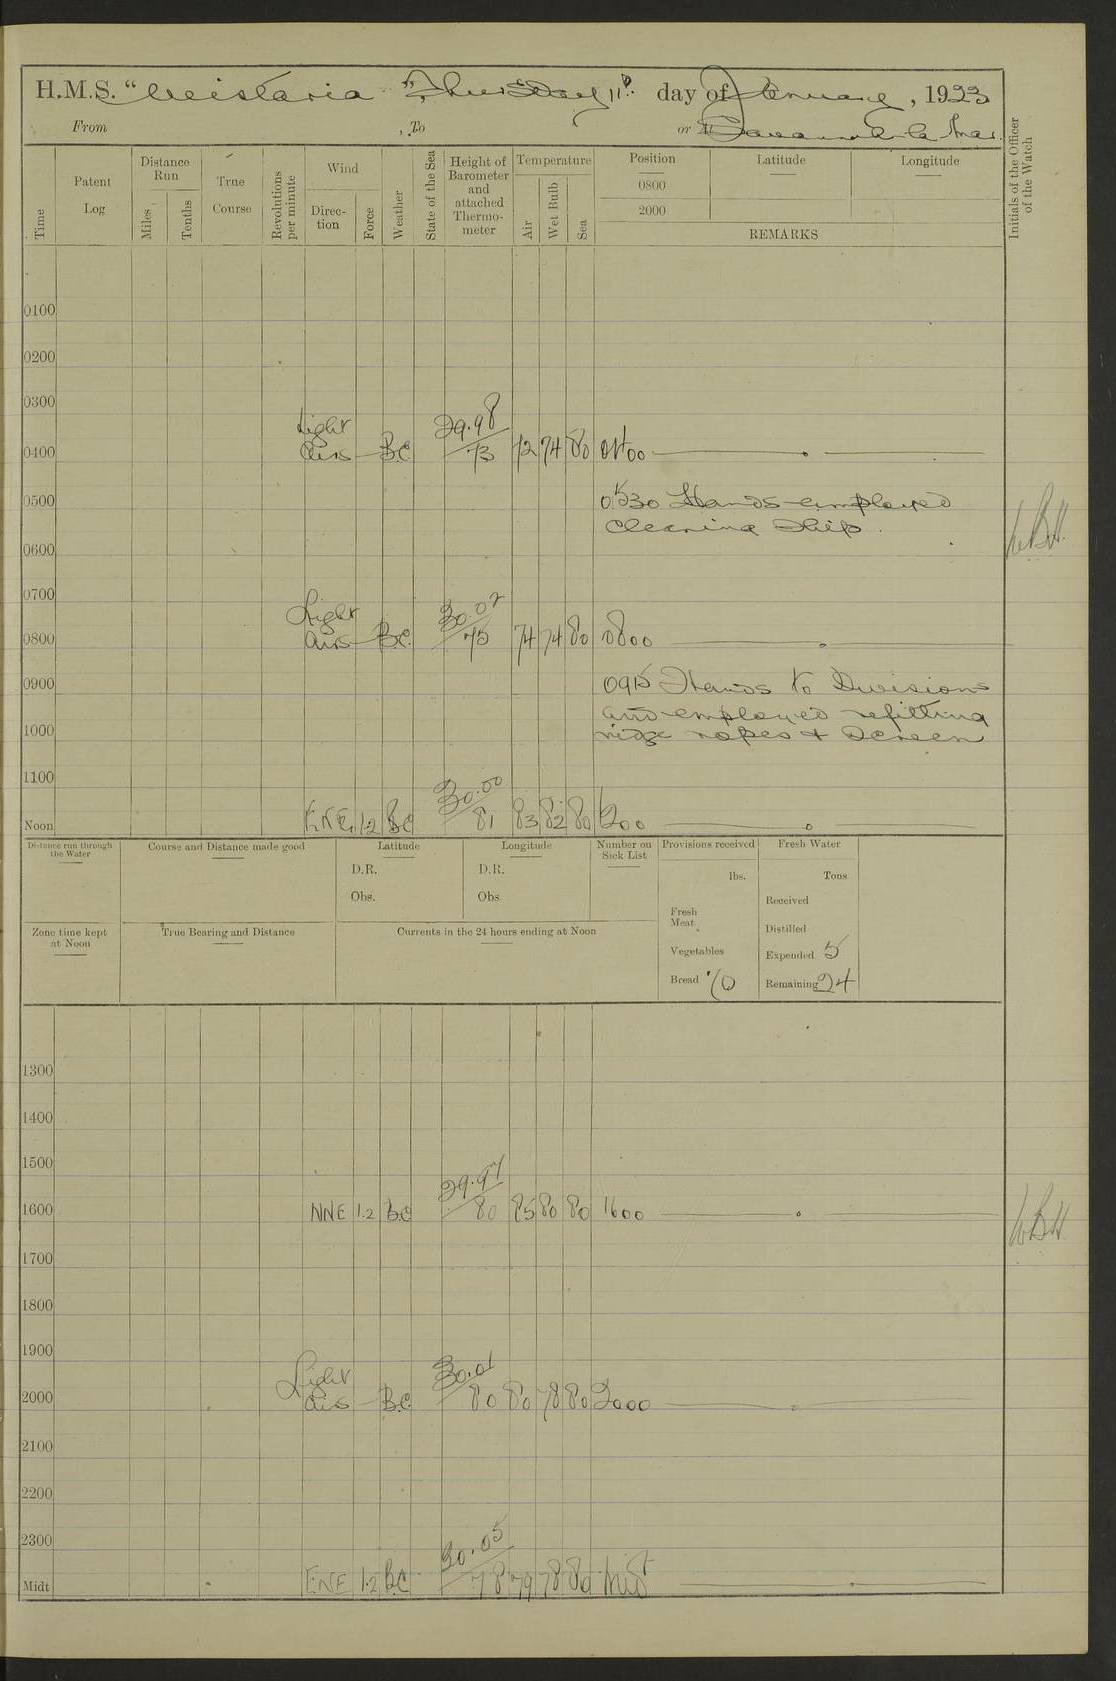 H.M.S. "Wistaria" Thursday 11th day of January, 1923
From , To or At Savannah la Mar.
Time
Patent Log
Distance Run
Miles
Tenths
True Course
Revolutions per minute
Wind
Direction
Force
Weather
State of the Sea
Height of Barometer and attached Thermometer
Temperature
Air
Wet Bulb
Sea
Position
0800
2000
Latitude
Longitude
REMARKS
Initials of the Officer of the Watch
0100
0200
0300
0400 Light Airs BC 29.98 73 72 74 80 0400
0500 0530 Hands employed
cleaning Ship.
0600
0700
0800 Light airs BC 30.02 75 74 74 80 0800
0900 0915 Hands to Divisions
and employed refitting
1000 ridge ropes & screen
1100
Noon ENE 1.2 BC 30.00 81 83 82 80 1200
Distance run through the Water
Course and Distance made good
Latitude
D.R.
Obs.
Longitude
D.R.
Obs
Number on Sick List
Provisions received
lbs.
Fresh Meat
Vegetables
Bread 70
Fresh Water
Tons
Received
Distilled
Expended 5
Remaining 24
Zone time kept at Noon
True Bearing and Distance
Currents in the 24 hours ending at Noon
1300
1400
1500
1600 NNE 1.2 BC 29.97 80 85 80 80 1600
1700
1800
1900
2000 Light airs BC 30.01 80 80 78 80 2000
2100
2200
2300
Midt ENE 1.2 BC 30.05 78 79 78 80 Midt
WBH
WBH